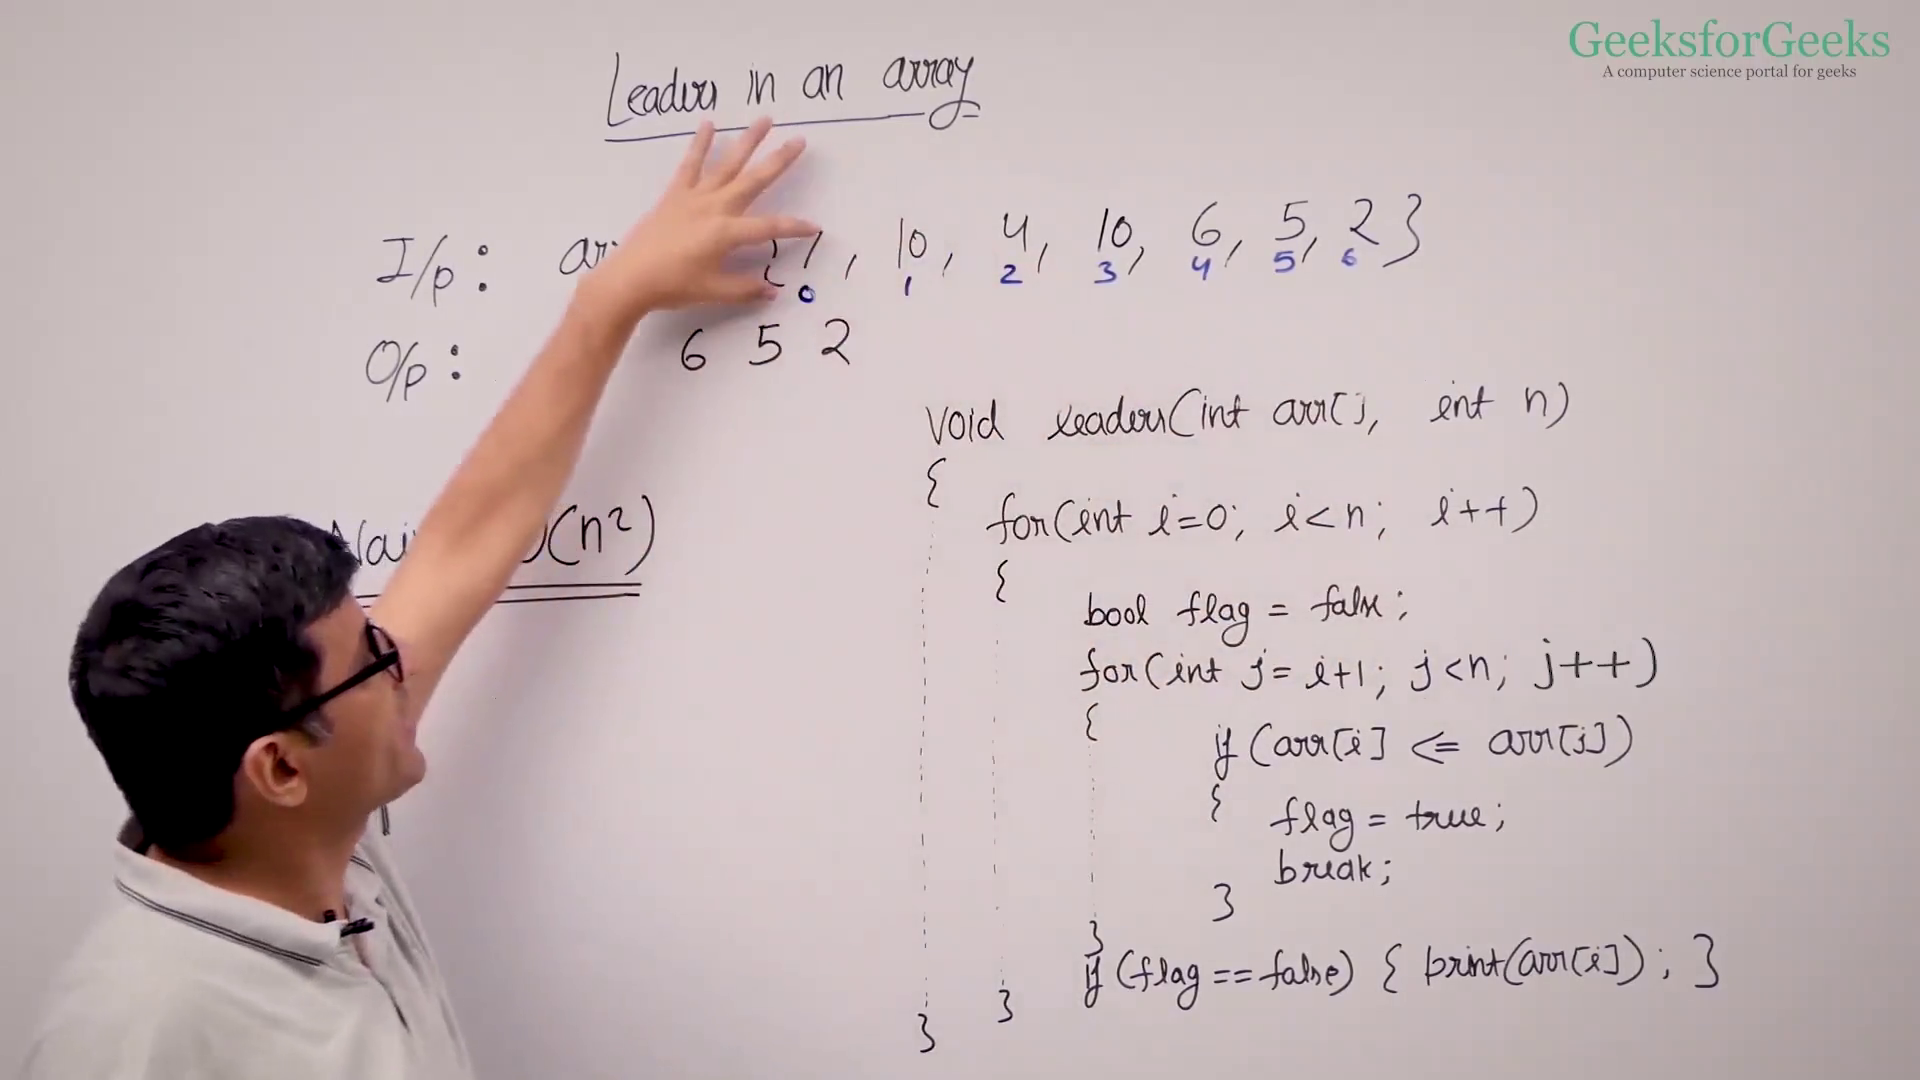 GeeksforGeeks
A computer science portal for geeks
Leaders in an array
I/p: , 10, 4, 10, 6, 5, 2 }
0 1 2 3 4 5 6
O/p: 6 5 2
void leaders(int arr[], int n)
{
for(int i=0; i<n; i++)
{
bool flag = false;
for(int j= i+1; j<n; j++)
{
if (arr[i] <= arr[j])
{
flag = true;
break;
}
}
if (flag == false) { print(arr[i]); }
}
}
(n²)